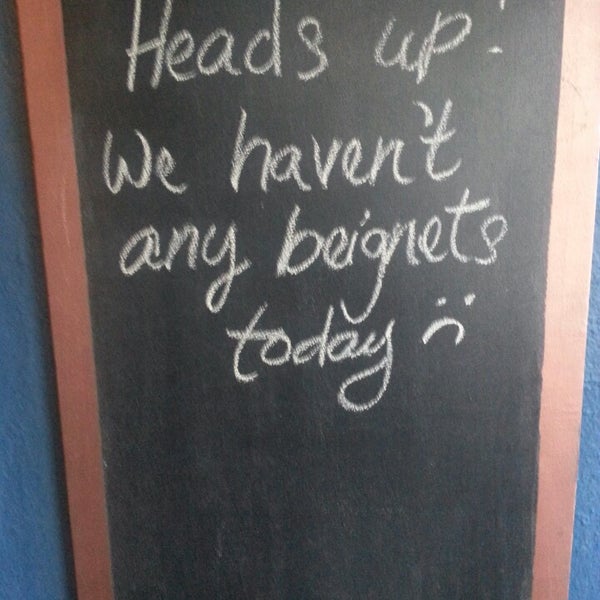 Heads up!
We haven't
any beignets
today :(